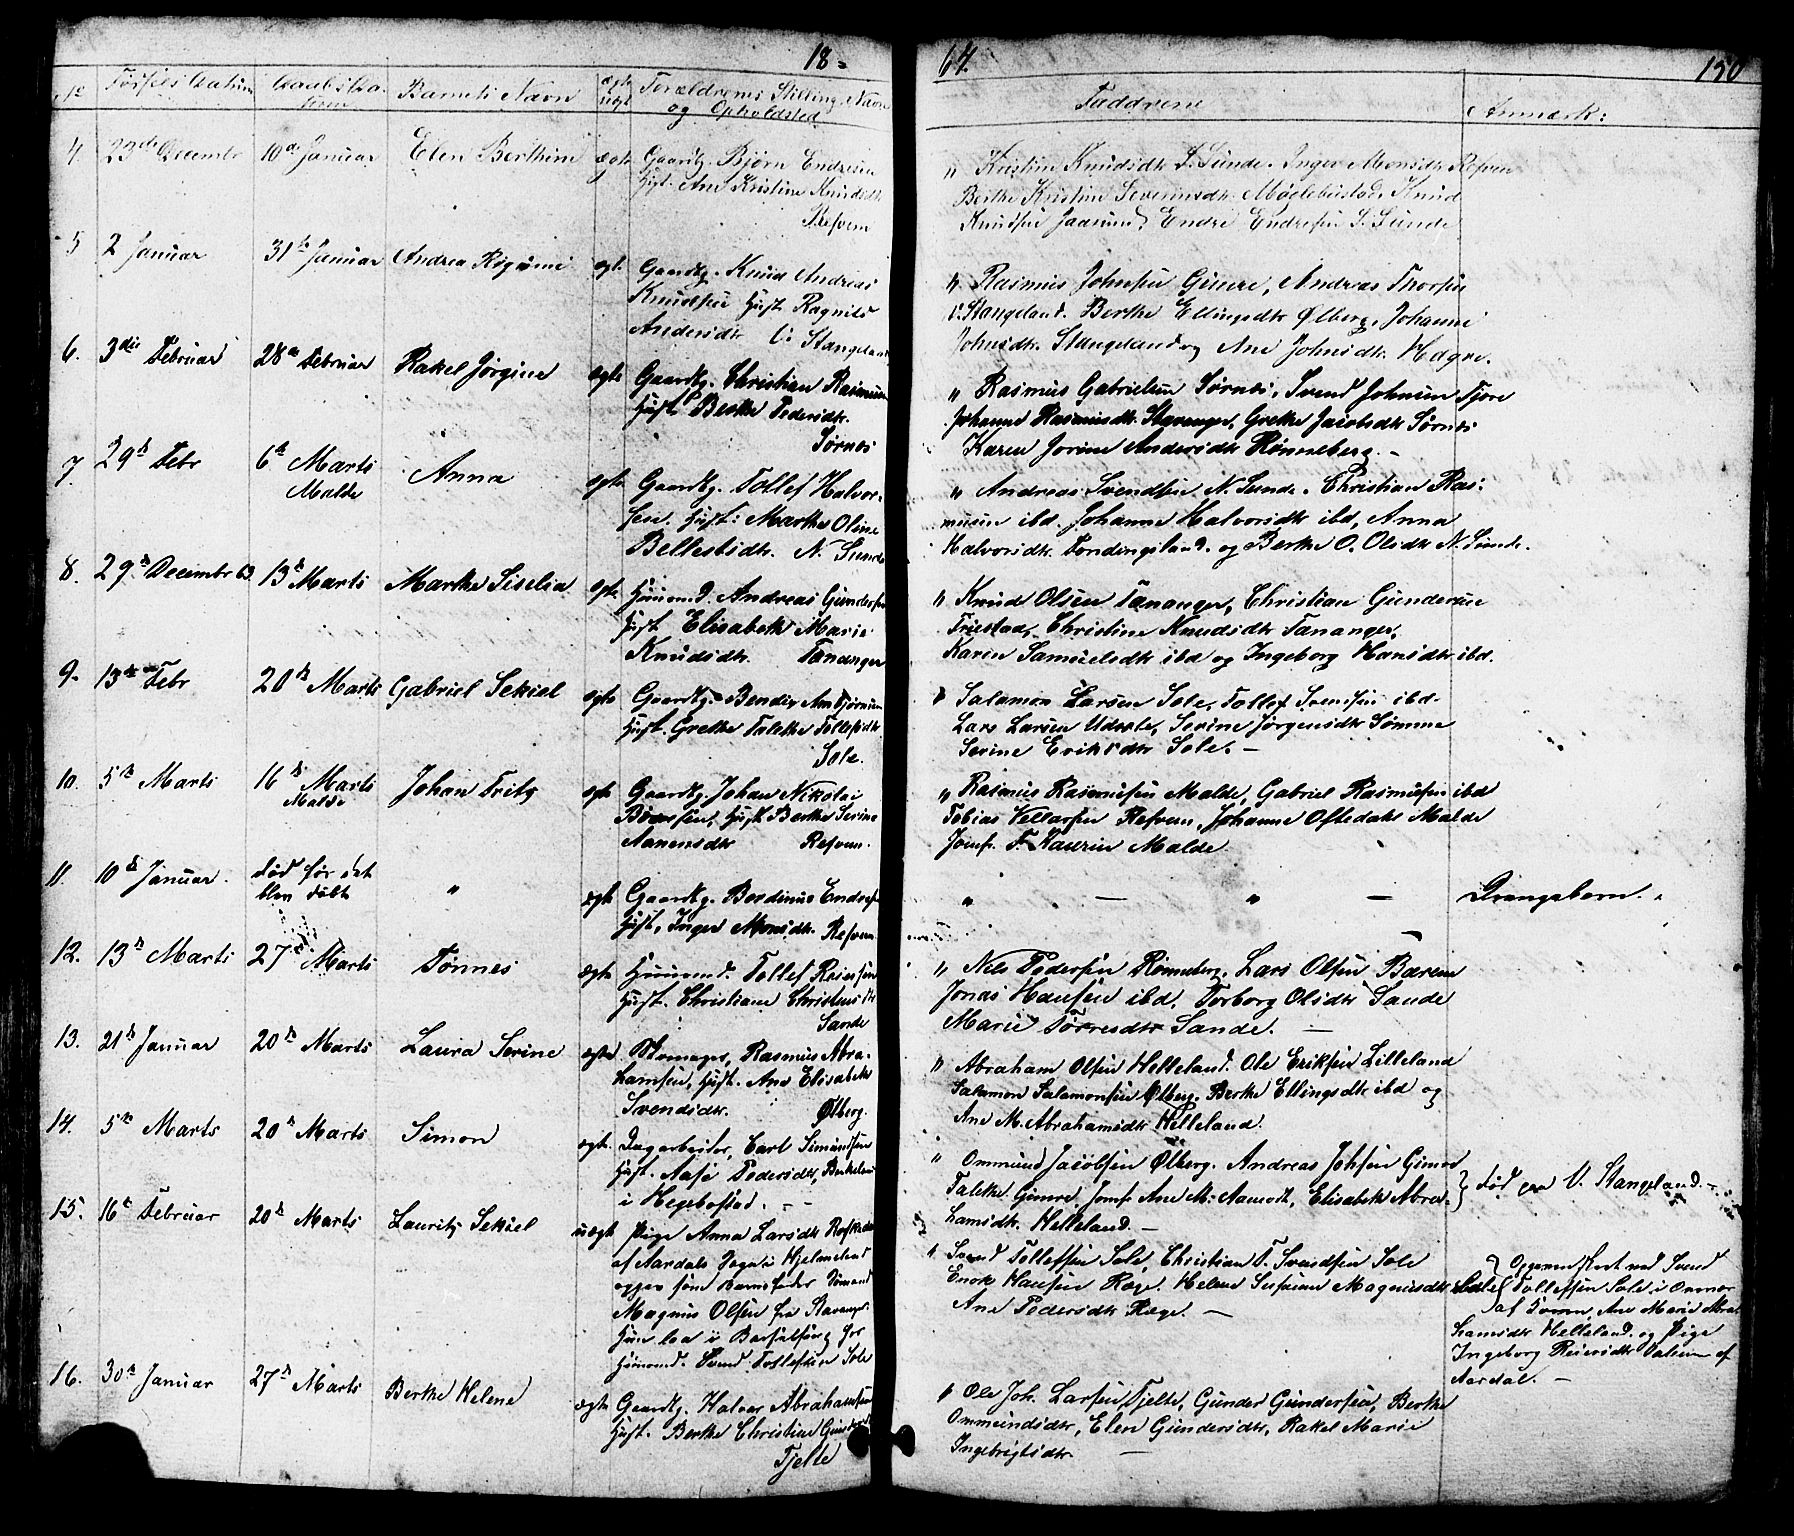 18 64. 150
No Fødsels Datum Daabs Datum Barnets Navn ægte uægt Forældrenes Stilling, Navn og Opholdsted Faddrene Anmærk:
4. 23de Decembr 10de Januar Elen Berthine ægte Gaardbr. Bjørn Endresen
Hust. Ane Kristine Knudsdtr
Refvem
" Kristine Knudsdtr S. Sunde. Inger Monsdtr Refvem
Berthe Kristine Severinsdtr Møglebustad, Knud
Knudsen Jaasund, Endre Endresen S. Sunde
5 2 Januar 31te Januar Andrea Regine ægt. Gaardbr. Knud Andreas
Knudsen Hust Ragnild
Andersdtr V. Stangeland
" Rasmus Johnsen Gimre, Andreas Thorsen
V. Stangeland. Berthe Ellingsdtr Ølberg, Johanne
Johnsdtr. Stangeland og Ane Johnsdtr. Hagne.
6. 3die Februar 28de Februar Rakel Jørgine ægte Gaardbr. Christian Rasmusen
Hust. Berthe Pedersdtr.
Sørnes
" Rasmus Gabrielsen Sørnes, Svend Johnsen Tjore
Johanne Rasmusdtr. Stavanger, Grethe Jacobsdtr Sørnes
Karen Jorine Andersdtr Rønneberg. -
7. 29de Febr 6te Marts Malde Anna ægte Gaardbr. Tollef Halvor-
sen. Hust: Marthe Oline
Bellestsdtr. N. Sunde
" Andreas Svendsen N. Sunde. Christian Ras-
musen ibd. Johanne Halvorsdtr ibd, Anna
Halvorsdtr. og Berthe O. Olsdtr N. Sunde.
8. 29de Decembr 63. 13de Marts Marthe Siselia ægte Huusmd. Andreas Gundersen
Hust Elisabeth Marie
Knudsdtr. Tananger
" Knud Olsen Tananger, Christian Gundersen
Friestad, Christine Knudsdtr Tananger,
Karen Samuelsdtr ibd og Ingeborg Hansdtr ibd.
9. 13de Febr 20de Marts Gabriel Sekiel ægte Gaardbr. Bendix Ambjørnsen
Hust. Grethe Talethe Tollefsdtr
Sole.
" Salamon Larsen Sole, Tollef Svensen ibd.
Lars Larsen Udsole, Serine Jørgensdtr Sømme
Serine Eriksdtr Sole. -
10. 5te Marts 16de Marts Malde Johan Fritz ægte Gaardbr. Johan Nikolai
Børresen, Hust Berthe Serine
Aanensdtr Refvem.
" Rasmus Rasmusen Malde, Gabriel Rasmusen ibd
Tobias Refvem, Johanne Oftedahl Malde
Jomfr. F. Kaurin Malde
11. 10de Januar. død før det blev døbt " ægte Gaardbr. Berdinus Endresen
Hust, Inger Monsdtr. Refvem.
" - " - Drengebarn.
12. 13de Marts 27de Marts Tønnes ægte Huusmd. Tollef Reiersen
Hust. Christiane Christensdtr
Sande
" Nels Pedersen Rønneberg. Lars Olsen Bærem
Jonas Hansen ibd. Torborg Olsdtr Sande
Marie Tørresdtr Sande. -
13. 21de Januar 20de Marts Laura Serine ægte Skomager, Rasmus Abra-
hamsen, Hust. Ane Elisabeth
Svendsdtr. Ølberg.
" Abraham Olsen Helleland. Ole Eriksen Lilleland
Salamon Salamonsen Ølberg. Berthe Ellingsdtr ibd og
Ane M. Abrahamsdtr Helleland.
14. 5te Marts 20de Marts Simon ægte. Dagarbeider, Carl Simundsen
Hust. Aase Pedersdtr,
i Hegebostad. -
" Ommund Jacobsen Ølberg. Andreas Johsen Gimre
Talethe Gimre, Jomfr Ane M. Aamodt, Elisabeth Abra-
hamsdtr. Helleland. -
død paa V. Stangeland. -
15. 16de Februar 20de Marts Lauritz Sekiel uægt Pige Anna Larsdtr
af Aardals Sogn i Hjelmeland
opgav som Barnefader Sømand
Magnus Olsen fra Stavanger
Hun laa i Barselseng hos
Huusmd. Svend Tollefsen Sole
" Svend Tollefsen Sole, Christian T. Svendsen Sole
Enok Hansen Ræge. Helene Susanne Magnusdtr Sole
Ane Pedersdtr Ræge. -
Overenskort ved Svend
Tollefsen Sole i Ommer
af Ane Marie Abra-
hamsdtr Helleland. og Pige
Ingeborg Reiersdtr Valem af
Aardal. -
16. 30te Januar 27de Marts Berthe Helene ægte Gaardbr. Halvor Abrahamsen
Hust. Berthe Christine Gundersdtr
Tjelte
" Ole Joh. Larsen Tjelte, Gunder Gundersen, Berthe
Ommundsdtr, Elen Gundersdtr, Rakel Marie
Ingebrigtsdtr -